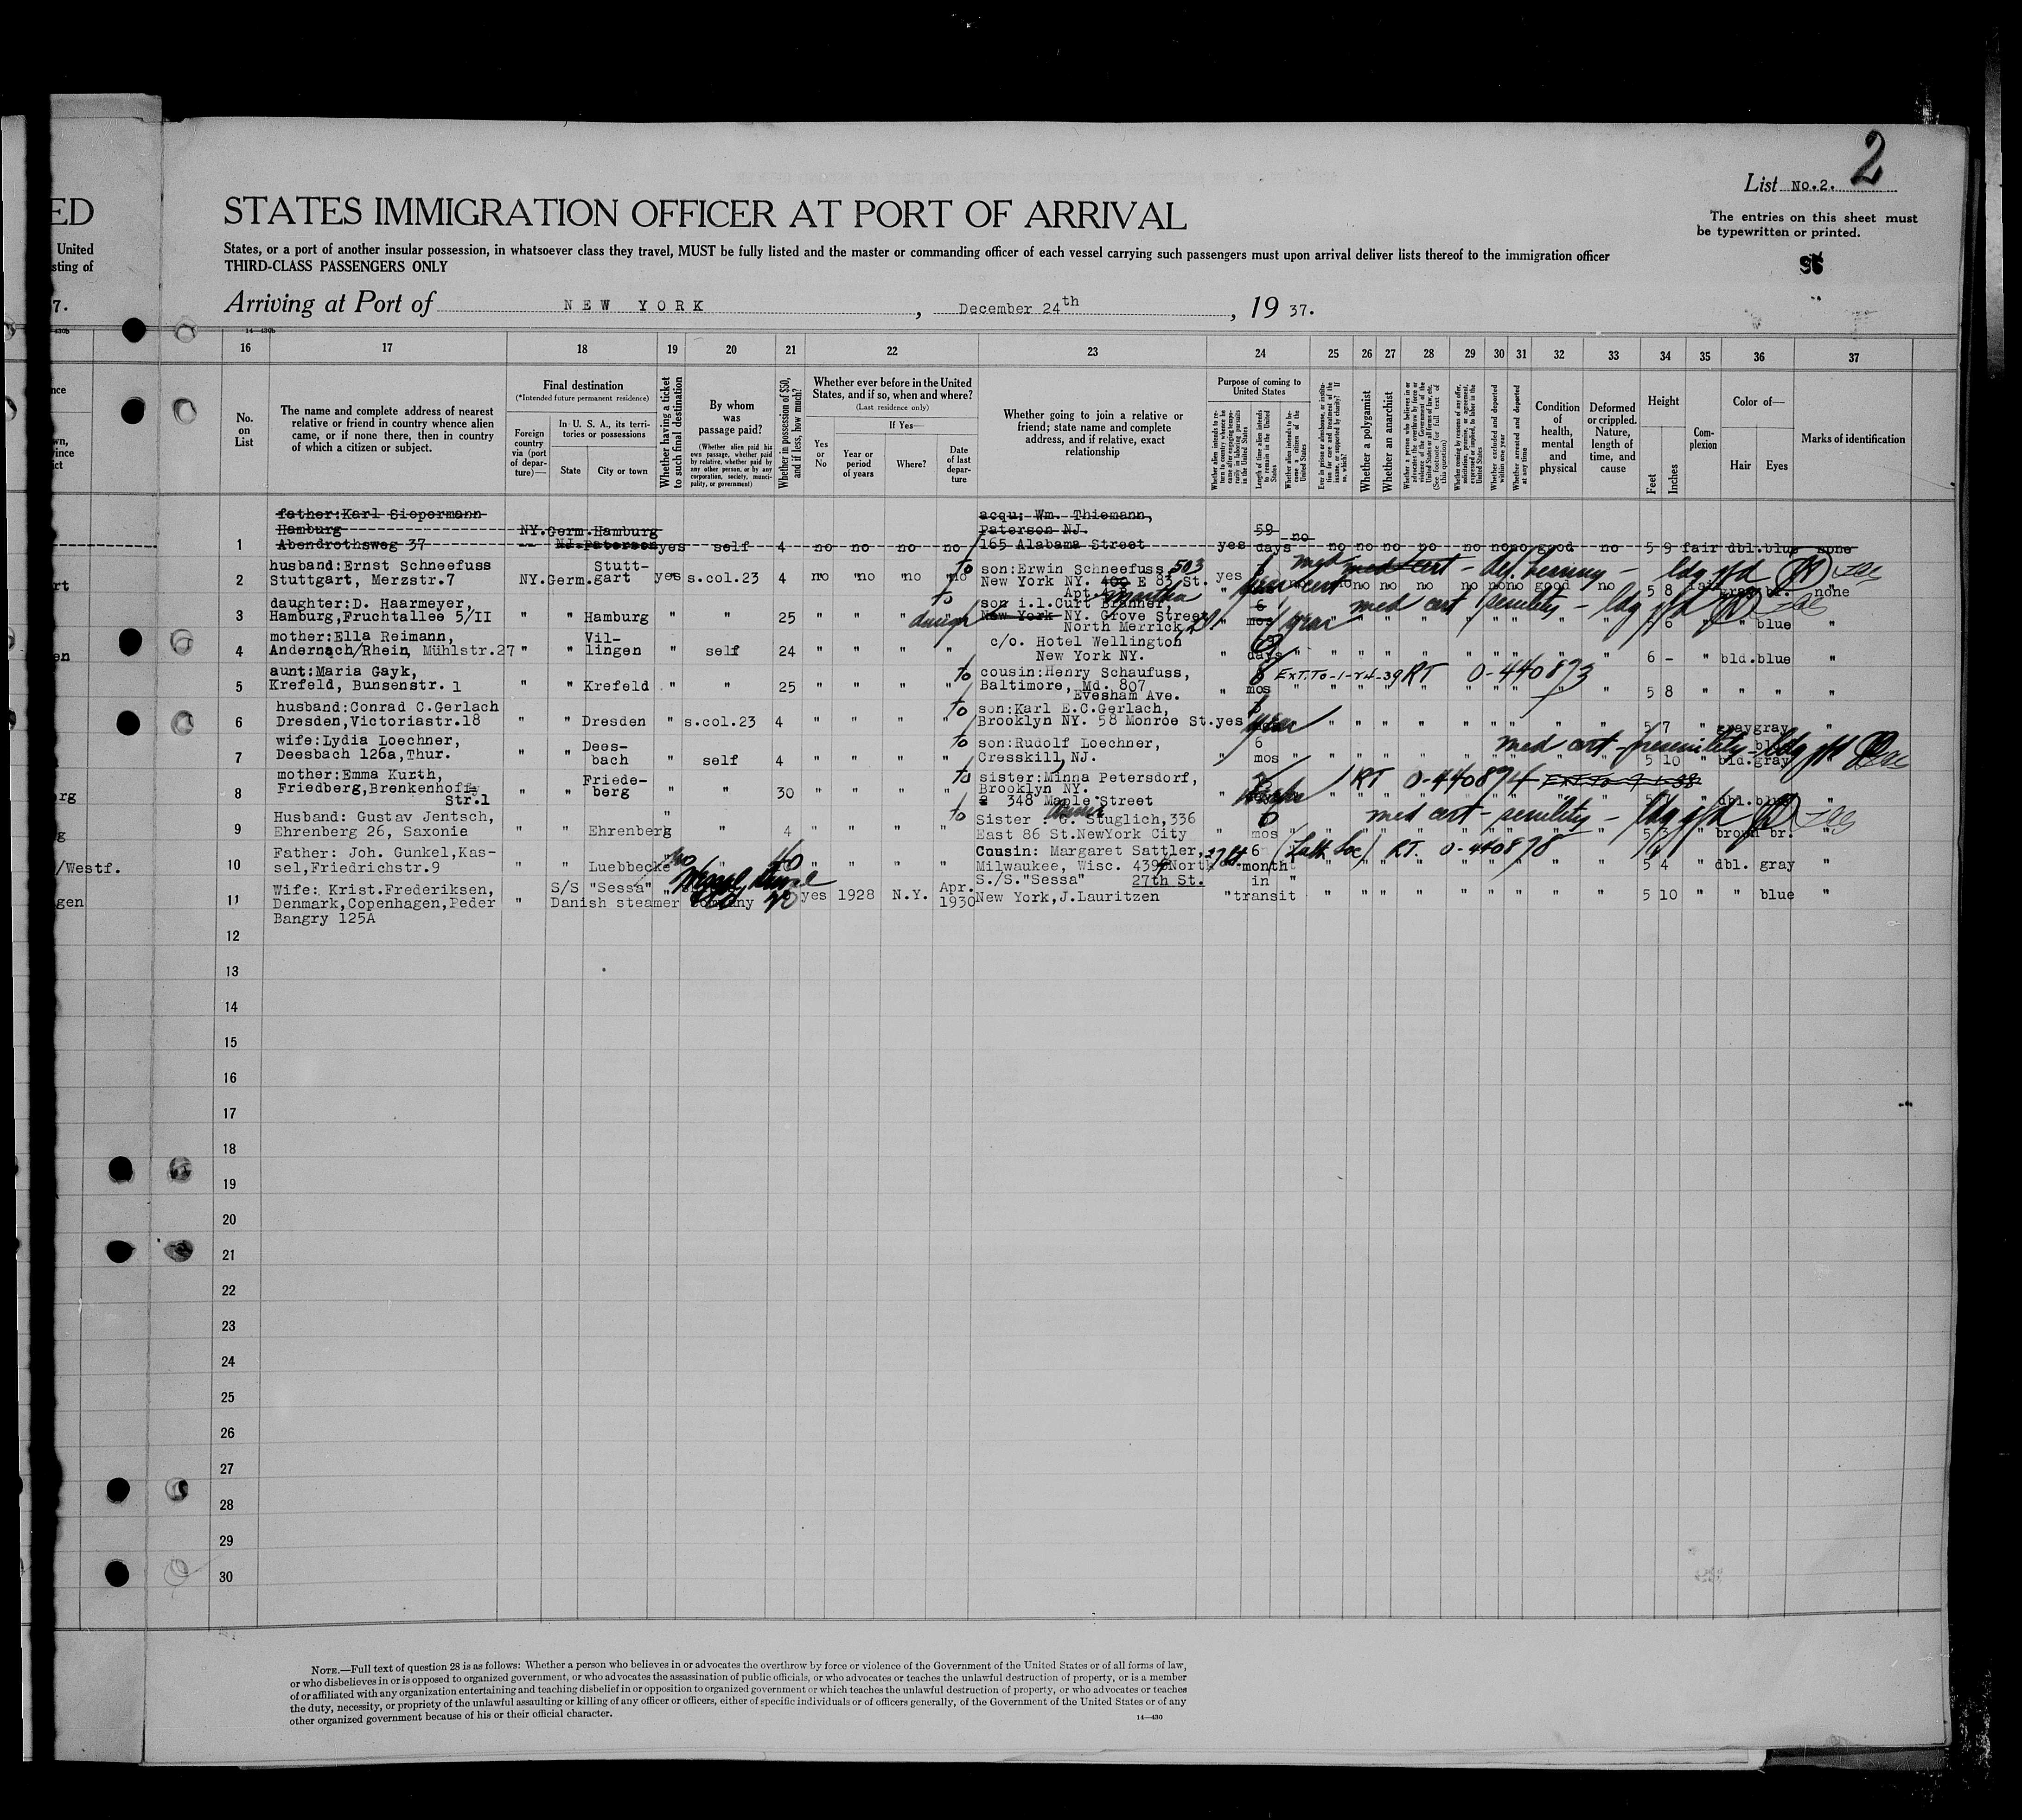 2
List No.2.
STATES IMMIGRATION OFFICER AT PORT OF ARRIVAL
The entries on this sheet must
be typewritten or printed.
States, or a port of another insular possession, in whatsoever class they travel, MUST be fully listed and the master or commanding officer of each vessel carrying such passengers must upon arrival deliver lists thereof to the immigration officer
THIRD-CLASS PASSENGERS ONLY
Arriving at Port of NEW YORK, December 24th, 19 37.
ED
United
sting of
7.
16 17 18 19 20 21 22 23 24 25 26 27 28 29 30 31 32 33 34 35 36 37
No. on List
The name and complete address of nearest relative or friend in country whence alien came, or if none there, then in country of which a citizen or subject.
Final destination
(*Intended future permanent residence)
Foreign country via (port of departure)—
In U. S. A., its territories or possessions
State
City or town
Whether having a ticket to such final destination
By whom was passage paid?
(Whether alien paid his own passage, whether paid by relative, whether paid by any other person, or by any corporation, society, municipality, or government)
Whether in possession of $50, and if less, how much?
Whether ever before in the United States, and if so, when and where?
(Last residence only)
Yes or No
If Yes—
Year or period of years
Where?
Date of last departure
Whether going to join a relative or friend; state name and complete address, and if relative, exact relationship
Purpose of coming to United States
Length of time alien intends to remain in the United States
Whether alien intends to become a citizen of the United States
Whether a polygamist
Whether an anarchist
Whether excluded and deported within one year
Whether arrested and deported at any time
Condition of health, mental and physical
Deformed or crippled. Nature, length of time, and cause
Height
Feet
Inches
Complexion
Color of—
Hair
Eyes
Marks of identification
father:Karl Siepermann
Hamburg
1 Abendrothsweg 37 NY.Germ.Hamburg NJ.Paterson yes self 4 no no no no
acqu: Wm. Thiemann,
Paterson NJ.
165 Alabama Street yes 59 days no no no no no no no no good no 5 9 fair dbl.blue none
husband:Ernst Schneefuss
2 Stuttgart, Merzstr.7 NY.Germ. Stuttgart yes s.col.23 4 no no no no
to son:Erwin Schneefuss, 503
New York NY. E 83 St. yes
Apt. no no no no no no good no 5 8 fair gray br. none
med cert - def. hearing - ldg
daughter:D. Haarmeyer,
3 Hamburg,Fruchtallee 5/II " " Hamburg " " 25 " " " "
to Martha
son i.l.Curt Branner,
New York NY. Grove Street
North Merrick 1 year
med cert senility - ldg
5 6 " " blue "
mother:Ella Reimann,
4 Andernach/Rhein, Mühlstr.27 " " Villingen " self 24 " " " "
c/o. Hotel Wellington
New York NY. " days
6 - " bld.blue "
aunt:Maria Gayk,
5 Krefeld, Bunsenstr. 1 " " Krefeld " " 25 " " " "
to cousin:Henry Schaufuss,
Baltimore, Md. 807
Evesham Ave. " mos
Ext. To-1-24-39 RT 0-440873
5 8 " " " "
husband:Conrad C.Gerlach
6 Dresden,Victoriastr.18 " " Dresden " s.col.23 4 " " " "
to son:Karl E.C.Gerlach,
Brooklyn NY. 58 Monroe St. yes year
5 7 " gray gray "
wife:Lydia Loechner,
7 Deesbach 126a,Thur. " " Deesbach " self 4 " " " "
to son:Rudolf Loechner,
Cresskill, NJ. " 6 mos
med cert - presenility
5 10 " bld.gray
mother:Emma Kurth,
8 Friedberg,Brenkenhoff
Str.1 " " Friedeberg " " 30 " " " "
to sister:Minna Petersdorf,
Brooklyn NY.
348 Maple Street
RT 0-440874
dbl.blue "
Husband: Gustav Jentsch,
9 Ehrenberg 26, Saxonie " " Ehrenberg " " 4 " " " "
to Sister G. Stuglich,336
East 86 St.NewYork City " 6 mos
med cert - senility - ldg
5 3 " brown br. "
Father: Joh. Gunkel,Kas-
10 sel,Friedrichstr.9 " " Luebbecke no " 40 " " " "
Cousin: Margaret Sattler,
Milwaukee, Wisc. North
27th St. 6 month
RT. 0-440878
5 4 dbl. gray "
Wife: Krist.Frederiksen,
11 Denmark,Copenhagen,Peder
Bangry 125A
" S/S "Sessa"
Danish steamer company yes 1928 N.Y. Apr.
1930
S./S."Sessa"
New York,J.Lauritzen " in transit
5 10 " " blue "
12
13
14
15
16
17
18
19
20
21
22
23
24
25
26
27
28
29
30
rt
en
rg
g
/Westf.
gen
NOTE.—Full text of question 28 is as follows: Whether a person who believes in or advocates the overthrow by force or violence of the Government of the United States or of all forms of law,
or who disbelieves in or is opposed to organized government, or who advocates the assassination of public officials, or who advocates or teaches the unlawful destruction of property, or is a member
of or affiliated with any organization entertaining and teaching disbelief in or opposition to organized government or which teaches the unlawful destruction of property, or who advocates or teaches
the duty, necessity, or propriety of the unlawful assaulting or killing of any officer or officers, either of specific individuals or of officers generally, of the Government of the United States or of any
other organized government because of his or their official character.
14—430